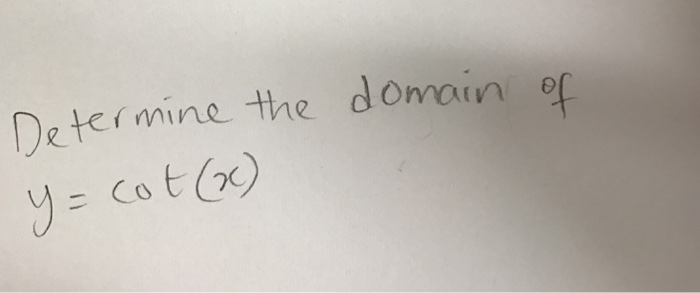 Determine the domain of
y = cot(x)